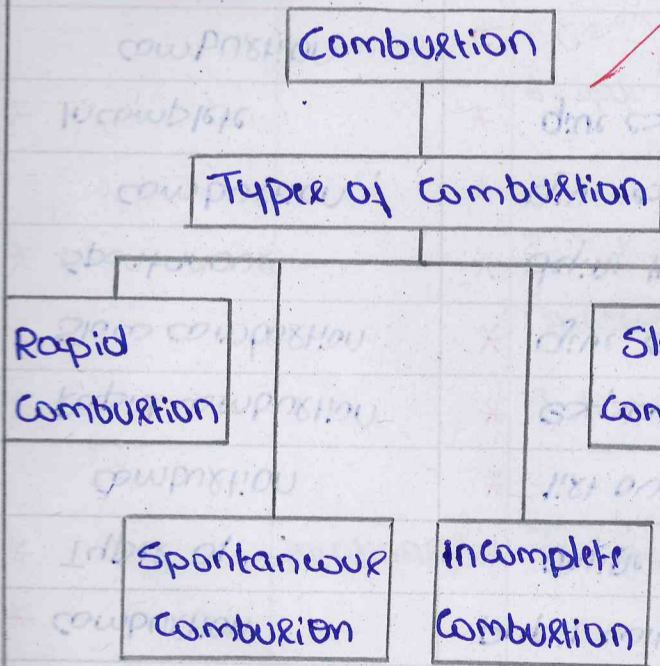 Combustion
Types of combustion
Rapid
Combustion
Spontaneous
Combusion
incomplete
Combustion